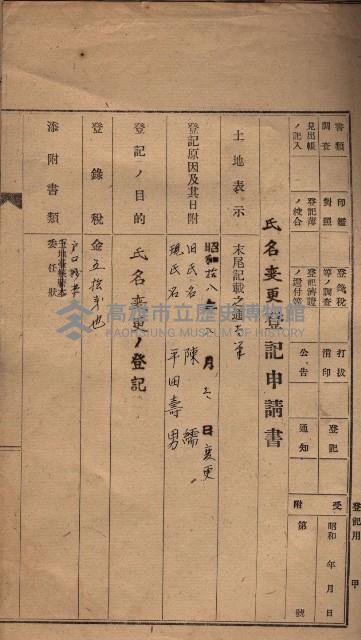 登記用 甲
受附 昭和 年 月 日 第 號
登記 通知
打拔 消印 公告
登錄稅等ノ調査 登記濟證ノ還付等
印鑑對照 登記簿ノ綴合
書類調査 見出帳ノ記入
氏名變更登記申請書
土地表示 末尾記載之通
登記原因及其日附 昭和拾八年 月 日變更
旧氏名 陳繻
現氏名 平田壽男
登記ノ目的 氏名變更ノ登記
登錄稅 金五拾 也
添附書類
委任狀
高雄市立歷史博物館
KAOHSIUNG MUSEUM OF HISTORY